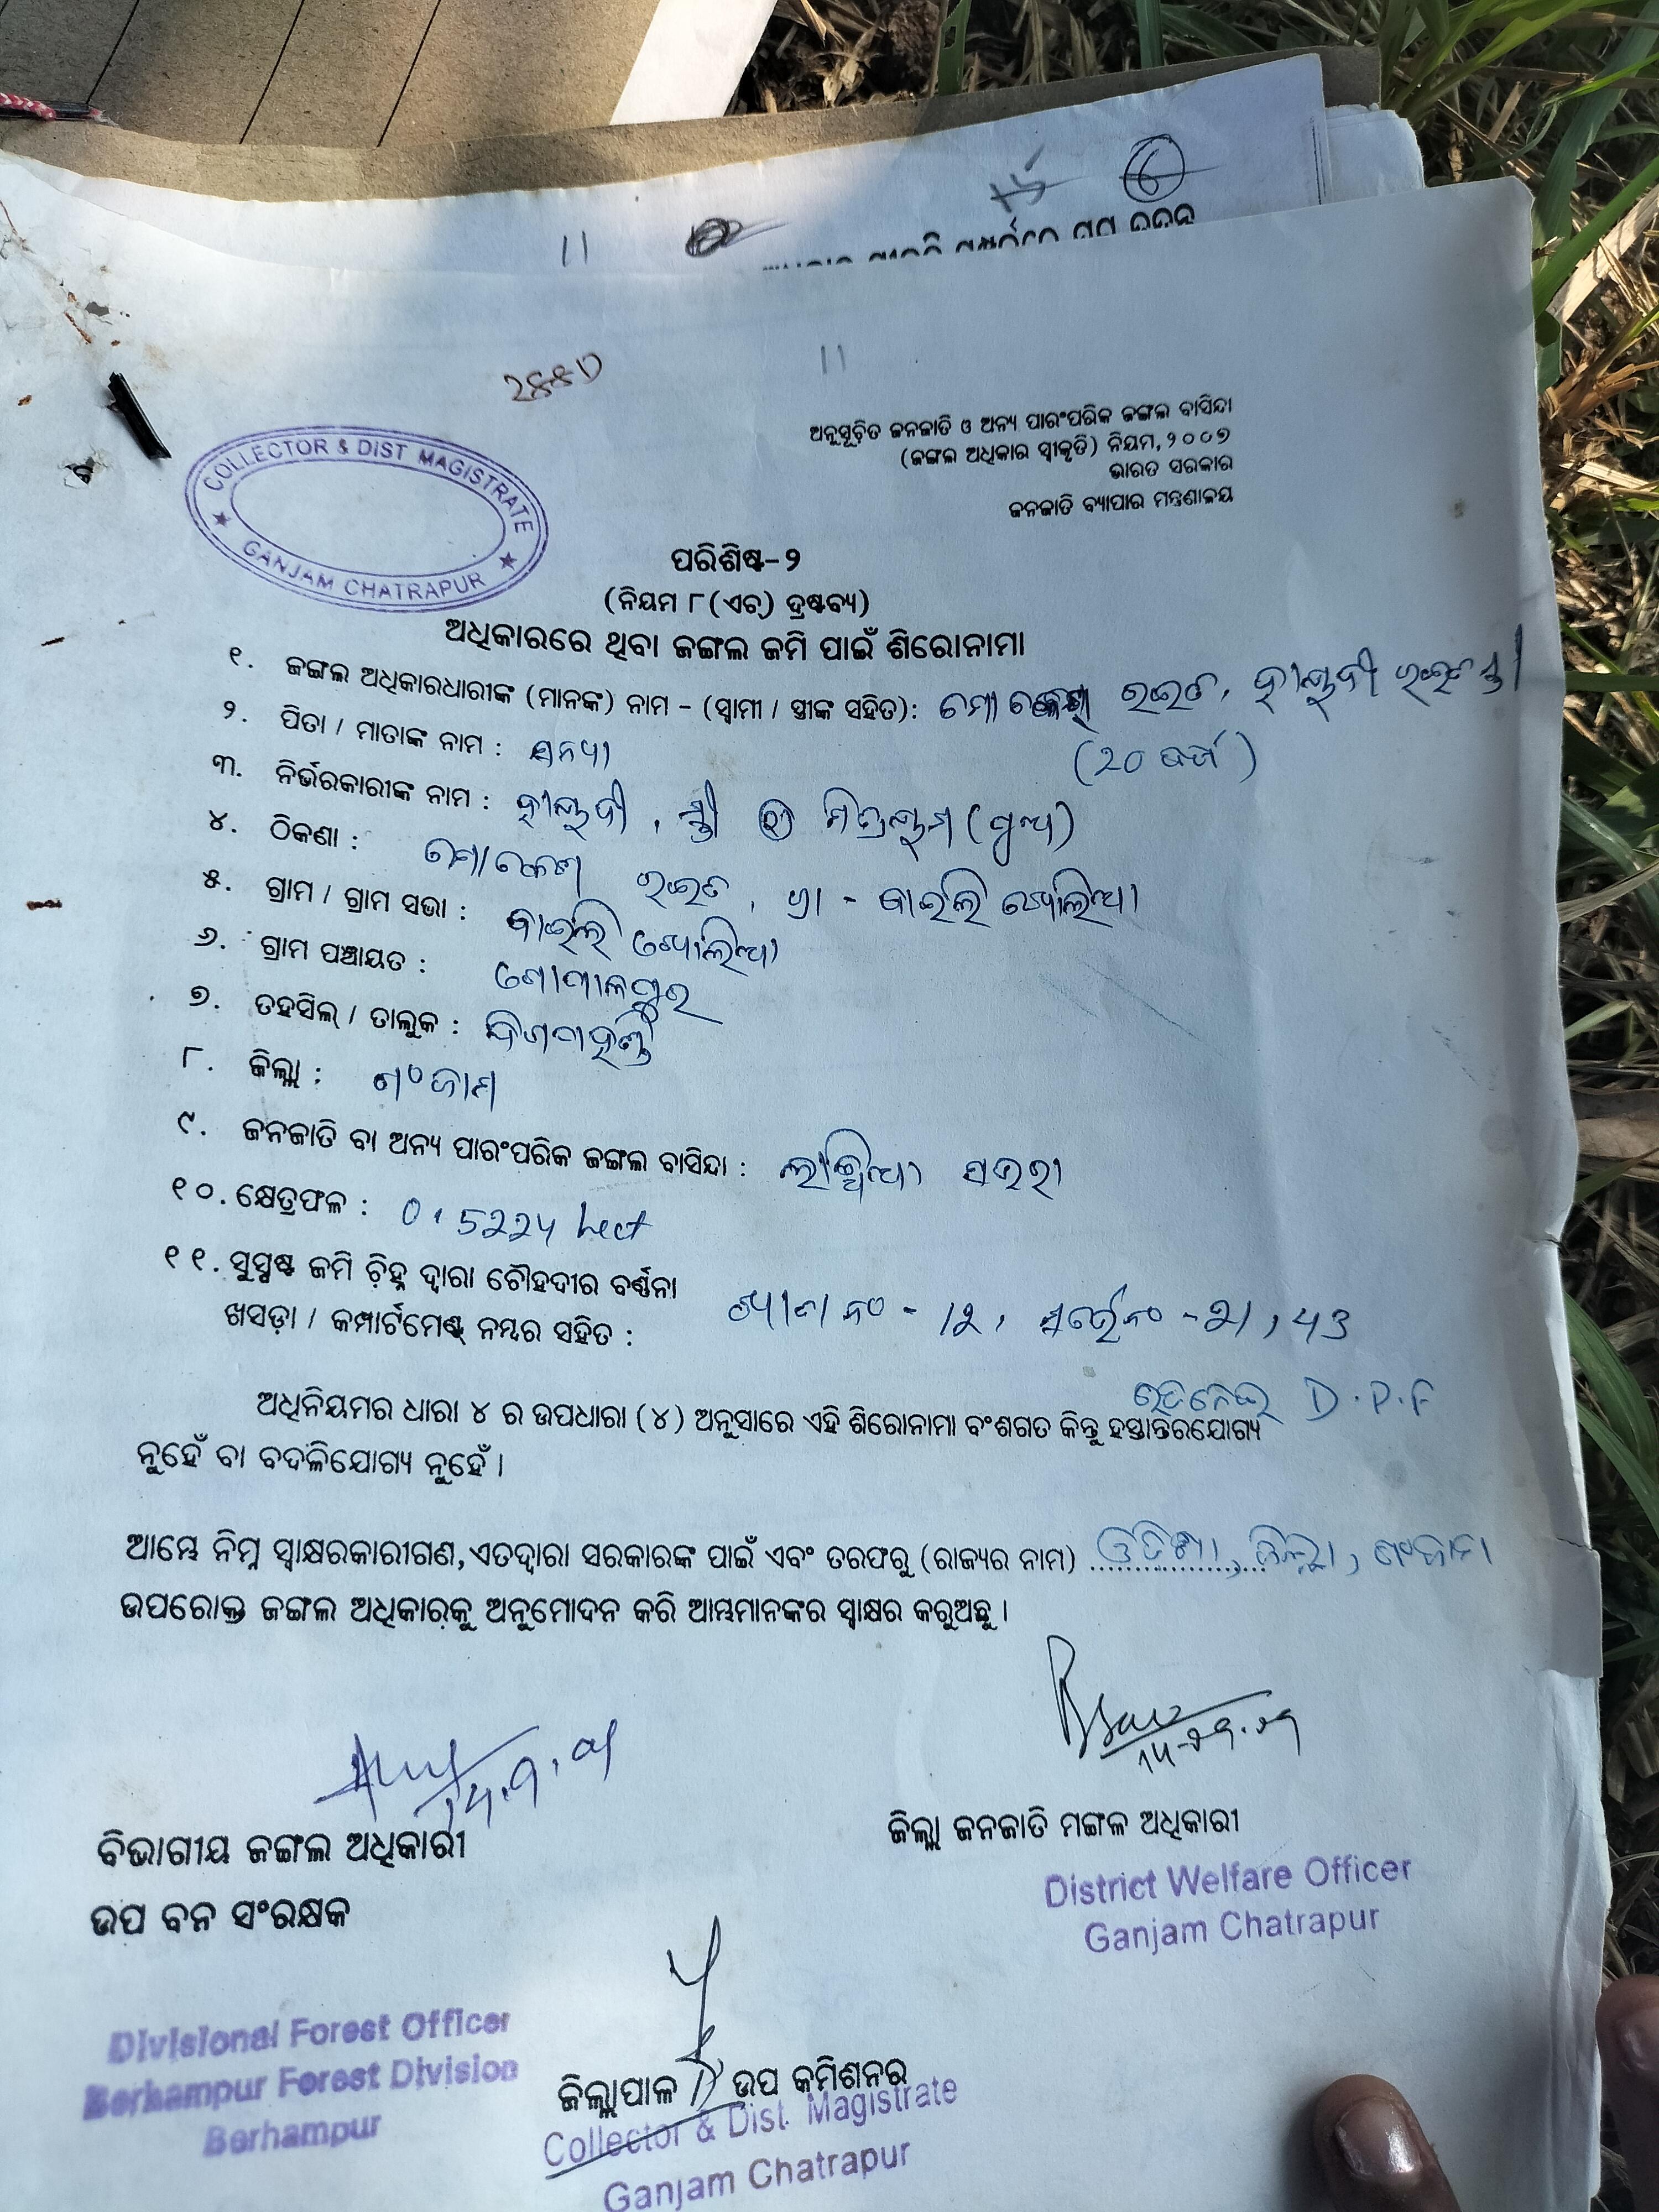 11
6
11
୨୫୫୦
COLLECTOR & DIST MAGISTRATE
★ GANJAM CHATRAPUR ★
ଅନୁସୂଚିତ ଜନଜାତି ଓ ଅନ୍ୟ ପାରଂପରିକ ଜଙ୍ଗଲ ବାସିନ୍ଦା
(ଜଙ୍ଗଲ ଅଧିକାର ସ୍ୱୀକୃତି) ନିୟମ, ୨୦୦୭
ଭାରତ ସରକାର
ଜନଜାତି ବ୍ୟାପାର ମନ୍ତ୍ରଣାଳୟ
ପରିଶିଷ୍ଟ-୨
(ନିୟମ ୮(ଏଚ୍) ଦ୍ରଷ୍ଟବ୍ୟ)
ଅଧିକାରରେ ଥିବା ଜଙ୍ଗଲ ଜମି ପାଇଁ ଶିରୋନାମା
୧. ଜଙ୍ଗଲ ଅଧିକାରଧାରୀଙ୍କ (ମାନଙ୍କ) ନାମ - (ସ୍ୱାମୀ / ସ୍ତ୍ରୀଙ୍କ ସହିତ): ରଇତ,
୨. ପିତା / ମାତାଙ୍କ ନାମ : (୨୦ ବର୍ଷ)
୩. ନିର୍ଭରକାରୀଙ୍କ ନାମ : , ସ୍ତ୍ରୀ
୪. ଠିକଣା : ରଇତ, ସା - ବାଇଲି ଖୋଲିଆ
୫. ଗ୍ରାମ / ଗ୍ରାମ ସଭା : ବାଇଲି ଖୋଲିଆ
୬. ଗ୍ରାମ ପଞ୍ଚାୟତ : ଗୋପାଳପୁର
୭. ତହସିଲ୍ / ତାଲୁକ : ଦିଗପହଣ୍ଡି
୮. ଜିଲ୍ଲା : ଗଂଜାମ
୯. ଜନଜାତି ବା ଅନ୍ୟ ପାରଂପରିକ ଜଙ୍ଗଲ ବାସିନ୍ଦା : ଲାଞ୍ଜିଆ ସଉରା
୧୦. କ୍ଷେତ୍ରଫଳ : 0.5224 hect
୧୧. ସୁସ୍ପଷ୍ଟ ଜମି ଚିହ୍ନ ଦ୍ୱାରା ଚୌହଦୀର ବର୍ଣ୍ଣନା
ଖସଡ଼ା / କମ୍ପାର୍ଟମେଣ୍ଟ୍ ନମ୍ବର ସହିତ : ଖାତା ନଂ - 12, ସର୍ଭେ ନଂ - 21, 43
D.P.F
ଅଧିନିୟମର ଧାରା ୪ ର ଉପଧାରା (୪) ଅନୁସାରେ ଏହି ଶିରୋନାମା ବଂଶଗତ କିନ୍ତୁ ହସ୍ତାନ୍ତରଯୋଗ୍ୟ
ନୁହେଁ ବା ବଦଳିଯୋଗ୍ୟ ନୁହେଁ ।
ଆମ୍ଭେ ନିମ୍ନ ସ୍ୱାକ୍ଷରକାରୀଗଣ, ଏତଦ୍ୱାରା ସରକାରଙ୍କ ପାଇଁ ଏବଂ ତରଫରୁ (ରାଜ୍ୟର ନାମ) ଓଡିଶା, ଜିଲ୍ଲା, ଗଂଜାମ
ଉପରୋକ୍ତ ଜଙ୍ଗଲ ଅଧିକାରକୁ ଅନୁମୋଦନ କରି ଆମ୍ଭମାନଙ୍କର ସ୍ୱାକ୍ଷର କରୁଅଛୁ ।
ବିଭାଗୀୟ ଜଙ୍ଗଲ ଅଧିକାରୀ
ଉପ ବନ ସଂରକ୍ଷକ
Divisional Forest Officer
Berhampur Forest Division
Berhampur
ଜିଲ୍ଲା ଜନଜାତି ମଙ୍ଗଳ ଅଧିକାରୀ
District Welfare Officer
Ganjam Chatrapur
ଜିଲ୍ଲାପାଳ / ଉପ କମିଶନର
Collector & Dist. Magistrate
Ganjam Chatrapur